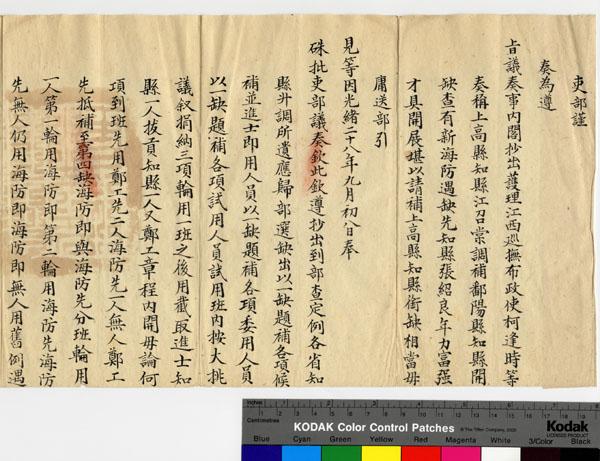 吏部謹
奏為遵
旨議奏事內閣抄出護理江西巡撫布政使柯逢時等
奏稱上高縣知縣江召棠調補鄱陽縣知縣開
缺查有新海防遇缺先知縣張紹良年力富强
才具開展堪以請補上高縣知縣銜缺相當毋
庸送部引
見等因光緒二十八年九月初八日奉
硃批吏部議奏欽此欽遵抄出到部查定例各省知
縣升調所遺應歸部選缺出以一缺題補各項候
補並進士即用人員以一缺題補各項委用人員
以一缺題補各項試用人員試用班內按大挑
議叙捐納三項輪用一班之後用截取進士知
縣一人拔貢知縣一人又鄭工章程內開毋論何
項到班先用鄭工先二人海防先一人無人鄭工
先抵補至第四缺海防即與海防先分班輪用
一人第一輪用海防即第二輪用海防先海防
先無人仍用海防即海防即無人用舊例遇
inches
Centimetres
KODAK Color Control Patches
© The Tiffen Company, 2000
Kodak
LICENSED PRODUCT
Blue Cyan Green Yellow Red Magenta White 3/Color Black